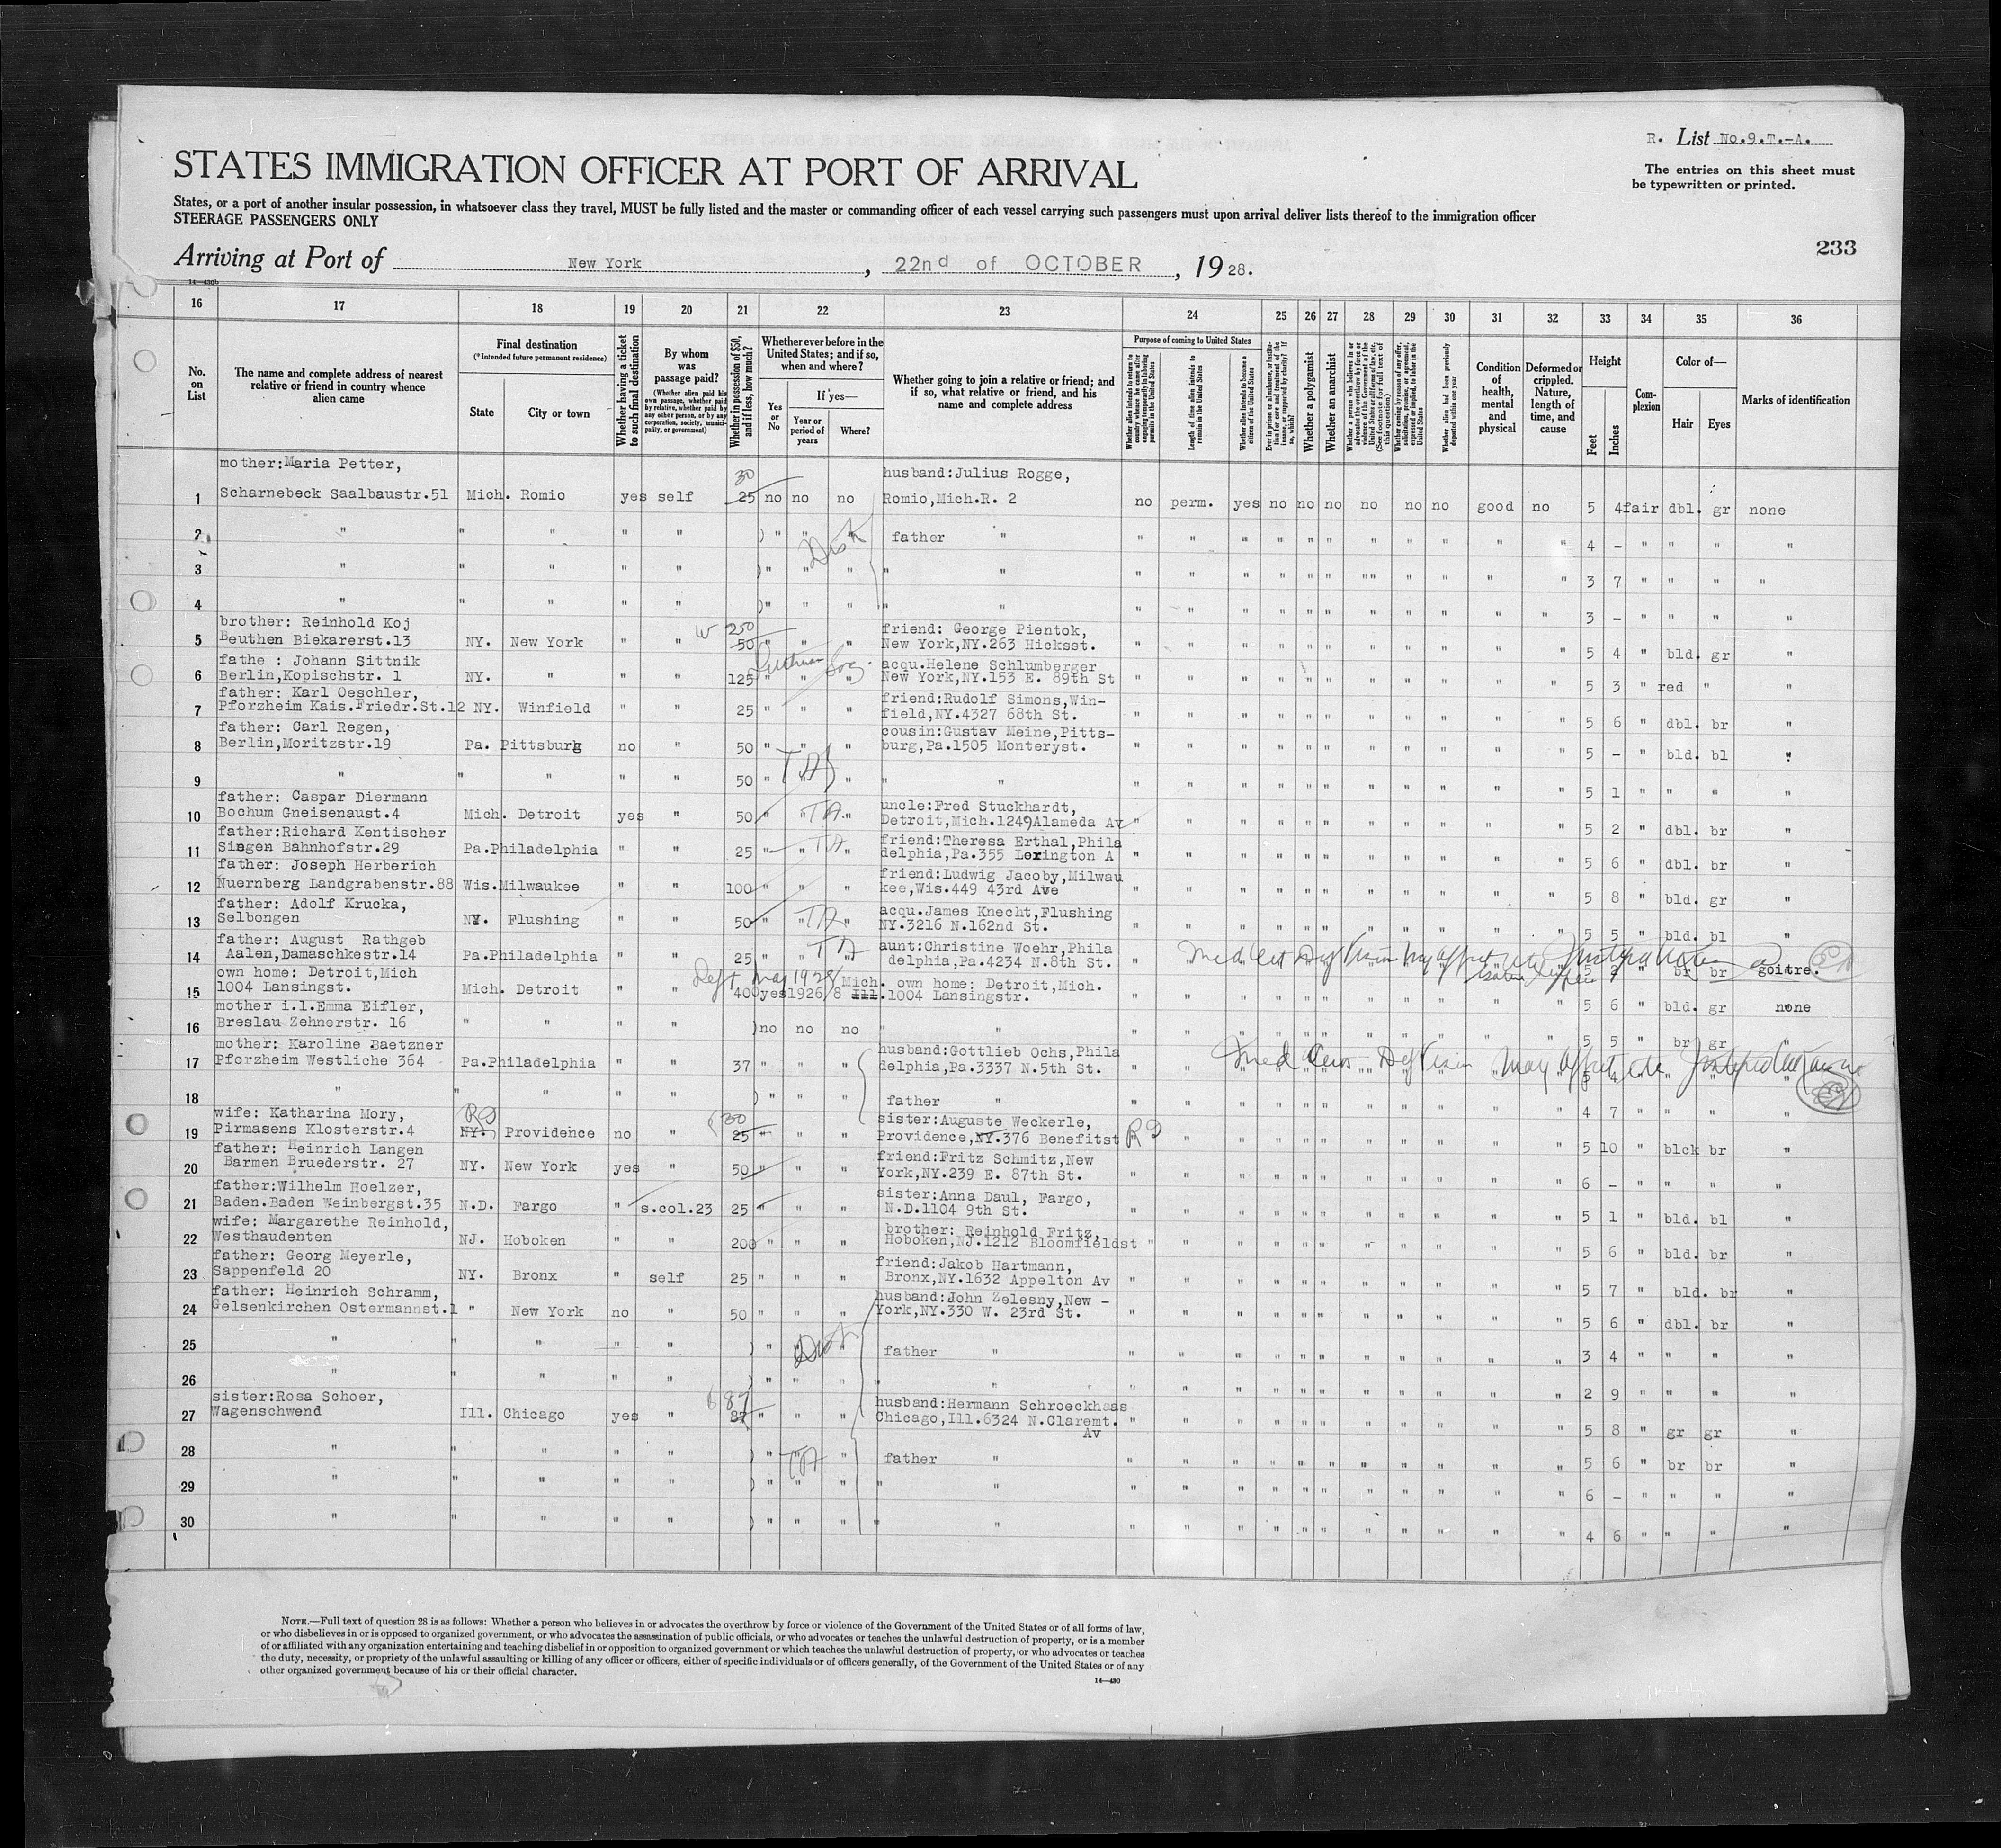 R. List No.9.T.-A.
STATES IMMIGRATION OFFICER AT PORT OF ARRIVAL
The entries on this sheet must
be typewritten or printed.
States, or a port of another insular possession, in whatsoever class they travel, MUST be fully listed and the master or commanding officer of each vessel carrying such passengers must upon arrival deliver lists thereof to the immigration officer
STEERAGE PASSENGERS ONLY
233
Arriving at Port of New York, 22nd of OCTOBER, 1928.
14—430b
16 17 18 19 20 21 22 23 24 25 26 27 28 29 30 31 32 33 34 35 36
No. on List
The name and complete address of nearest relative or friend in country whence alien came
Final destination (*Intended future permanent residence)
State
City or town
Whether having a ticket to such final destination
By whom was passage paid?
(Whether alien paid his own passage, whether paid by relative, whether paid by any other person, or by any corporation, society, municipality, or government)
Whether in possession of $50, and if less, how much?
Whether ever before in the United States; and if so, when and where?
Yes or No
If yes—
Year or period of years
Where?
Whether going to join a relative or friend; and if so, what relative or friend, and his name and complete address
Purpose of coming to United States
Length of time alien intends to remain in the United States
Whether alien intends to become a citizen of the United States
Whether a polygamist
Whether an anarchist
Condition of health, mental and physical
Deformed or crippled. Nature, length of time, and cause
Height
Feet
Inches
Complexion
Color of—
Hair
Eyes
Marks of identification
mother:Maria Petter,
husband:Julius Rogge,
30
1 Scharnebeck Saalbaustr.51 Mich. Romio yes self 25 no no no Romio,Mich.R. 2 no perm. yes no no no no no no good no 5 4 fair dbl. gr none
2 " " " " " ) " " " father " " " " " " " " " " " " 4 - " " " "
3 " " " " " ) " " " " " " " " " " " "" " " " " 3 7 " " " "
4 " " " " " ) " " " " " " " " " " " " " " " " 3 - " " " "
brother: Reinhold Koj
friend: George Pientok,
250
5 Beuthen Biekarerst.13 NY. New York " " 50 " " " New York,NY.263 Hicksst. " " " " " " " " " " " 5 4 " bld. gr "
fathe : Johann Sittnik
acqu.Helene Schlumberger
6 Berlin,Kopischstr. 1 NY. " " " 125 " " " New York,NY.153 E. 89th St " " " " " " " " " " " 5 3 " red " "
father: Karl Oeschler,
friend:Rudolf Simons,Win-
7 Pforzheim Kais.Friedr.St.12 NY. Winfield " " 25 " " " field,NY.4327 68th St. " " " " " " " " " " " 5 6 " dbl. br "
father: Carl Regen,
cousin:Gustav Meine,Pitts-
8 Berlin,Moritzstr.19 Pa. Pittsburg no " 50 " " " burg,Pa.1505 Monteryst. " " " " " " " " " " " 5 - " bld. bl "
9 " " " " " 50 " TA " " " " " " " " " " " " " " 5 1 " " " "
father: Caspar Diermann
uncle:Fred Stuckhardt,
10 Bochum Gneisenaust.4 Mich. Detroit yes " 50 " " TA " Detroit,Mich.1249Alameda Av " " " " " " " " " " " 5 2 " dbl. br "
father:Richard Kentischer
friend:Theresa Erthal,Phila
11 Singen Bahnhofstr.29 Pa.Philadelphia " " 25 " " TA " delphia,Pa.355 Lerington A " " " " " " " " " " " 5 6 " dbl. br "
father: Joseph Herberich
friend:Ludwig Jacoby,Milwau
12 Nuernberg Landgrabenstr.88 Wis.Milwaukee " " 100 " " " kee,Wis.449 43rd Ave " " " " " " " " " " " 5 8 " bld. gr "
father: Adolf Krucka,
acqu.James Knecht,Flushing
13 Selbongen NY. Flushing " " 50 " " TA " NY.3216 N.162nd St. " " " " " " " " " " " 5 5 " bld. bl "
father: August Rathgeb
aunt:Christine Woehr,Phila
14 Aalen,Damaschkestr.14 Pa.Philadelphia " " 25 " " TA " delphia,Pa.4234 N.8th St. Med Cert Def Vision May Affect br br goitre.
own home: Detroit,Mich
May 1928 Mich. own home: Detroit,Mich.
15 1004 Lansingst. Mich. Detroit " " 400 yes 1926/8 Ill. 1004 Lansingstr. " " " " " " " " " " " 5 6 " bld. gr none
mother i.l.Emma Eifler,
16 Breslau Zehnerstr. 16 " " " " ) no no no " " " " " " " " " " " " " 5 5 " br gr "
mother: Karoline Baetzner
husband:Gottlieb Ochs,Phila
17 Pforzheim Westliche 364 Pa.Philadelphia " " 37 " " " delphia,Pa.3337 N.5th St. Med Cert Def Vision May Affect 5 4 " " " "
18 " " " " " ) " " " father " " " " " " " " " " " " 4 7 " " " "
wife: Katharina Mory,
sister:Auguste Weckerle,
30
19 Pirmasens Klosterstr.4 NY. Providence no " 25 " " " Providence,NY.376 Benefitst " " " " " " " " " " " 5 10 " blck br "
father: Heinrich Langen
friend:Fritz Schmitz,New
20 Barmen Bruederstr. 27 NY. New York yes " 50 " " " York,NY.239 E. 87th St. " " " " " " " " " " " 6 - " " " "
father:Wilhelm Hoelzer,
sister:Anna Daul, Fargo,
21 Baden.Baden Weinbergst.35 N.D. Fargo " s.col.23 25 " " " N.D.1104 9th St. " " " " " " " " " " " 5 1 " bld. bl "
wife: Margarethe Reinhold,
brother: Reinhold Fritz,
22 Westhaudenten NJ. Hoboken " " 200 " " " Hoboken,NJ.1212 Bloomfieldst " " " " " " " " " " " 5 6 " bld. br "
father: Georg Meyerle,
friend:Jakob Hartmann,
23 Sappenfeld 20 NY. Bronx " self 25 " " " Bronx,NY.1632 Appelton Av " " " " " " " " " " " 5 7 " bld. br "
father: Heinrich Schramm,
husband:John Zelesny,New -
24 Gelsenkirchen Ostermannst.1 " New York no " 50 " " " York,NY.330 W. 23rd St. " " " " " " " " " " " 5 6 " dbl. br "
25 " " " " " ) " " " father " " " " " " " " " " " " 3 4 " " " "
26 " " " " " ) " " " " " " " " " " " " " " " " 2 9 " " " "
sister:Rosa Schoer,
husband:Hermann Schroeckhaas
87
27 Wagenschwend Ill. Chicago yes " 87 " " " Chicago,Ill.6324 N.Claremt. " " " " " " " " " " " 5 8 " gr gr "
Av
28 " " " " " ) " TA " father " " " " " " " " " " " " 5 6 " br br "
29 " " " " " ) " " " " " " " " " " " " " " " 6 - " " " "
30 " " " " " ) " " " " " " " " " " " " " " " " 4 6 " " " "
NOTE.—Full text of question 28 is as follows: Whether a person who believes in or advocates the overthrow by force or violence of the Government of the United States or of all forms of law,
or who disbelieves in or is opposed to organized government, or who advocates the assassination of public officials, or who advocates or teaches the unlawful destruction of property, or is a member
of or affiliated with any organization entertaining and teaching disbelief in or opposition to organized government or which teaches the unlawful destruction of property, or who advocates or teaches
the duty, necessity, or propriety of the unlawful assaulting or killing of any officer or officers, either of specific individuals or of officers generally, of the Government of the United States or of any
other organized government because of his or their official character.
14—430